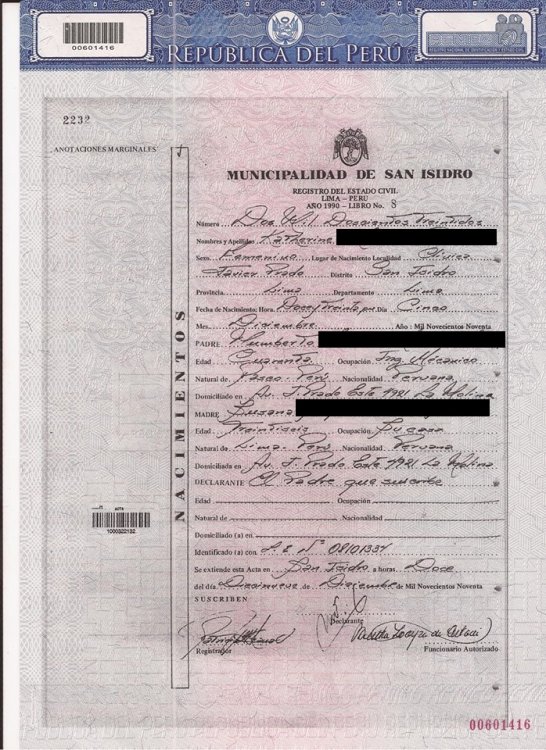 00601416
REPÚBLICA DEL PERÚ
2232
ANOTACIONES MARGINALES
MUNICIPALIDAD DE SAN ISIDRO
REGISTRO DEL ESTADO CIVIL
LIMA – PERU
AÑO 1990 – LIBRO No. 8
NACIMIENTOS
Número Dos Mil Doscientos Treintidos
Nombres y Apellidos Katherine
Sexo Femenino Lugar de Nacimiento Localidad Clínica
Javier Prado Distrito San Isidro
Provincia Lima Departamento Lima
Fecha de Nacimiento: Hora Día Cinco
Mes Diciembre Año: Mil Novecientos Noventa
PADRE Humberto
Edad Cuarenta Ocupación Ing. Mecánico
Natural de Pasco-Perú Nacionalidad Peruana
Domiciliado en Av. J. Prado Este 4921 La Molina
MADRE Susana
Edad Treintiseis Ocupación Su casa
Natural de Lima-Perú Nacionalidad Peruana
Domiciliada en Av. J. Prado Este 4921 La Molina
DECLARANTE El Padre que suscribe
Edad Ocupación
Natural de Nacionalidad
Domiciliado (a) en
Identificado (a) con L.E. N° 08101334
Se extiende esta Acta en San Isidro a horas Doce
del día Diecinueve de Diciembre de Mil Novecientos Noventa
SUSCRIBEN
Declarante
Registrador
Funcionario Autorizado
ACTA
1000322132
00601416